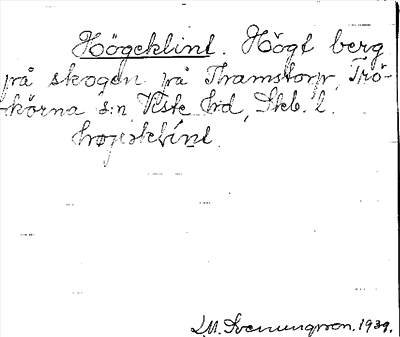 Högeklint. Högt berg
på skogen på Thamstorp, Trö-
körna s:n, Viste hd, Skb. l.
L.M. Svenungsson. 1939.